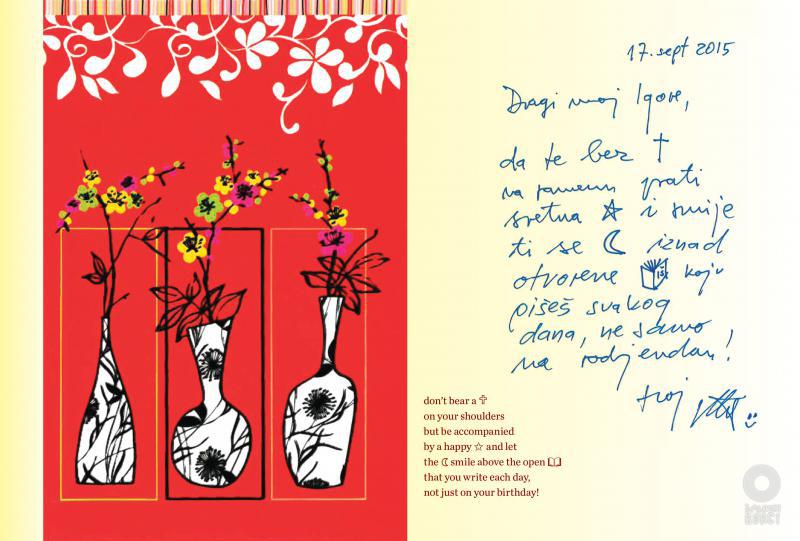 17. sept 2015
Dragi moj Igore,
da te bez ✝
na ramenu prati
sretna ☆ i smije
ti se ☾ iznad
otvorene 📖 koju
pišeš svakog
dana, ne samo
na rodjendan!
tvoj
don't bear a ✞
on your shoulders
but be accompanied
by a happy ☆ and let
the ☾ smile above the open 📖
that you write each day,
not just on your birthday!